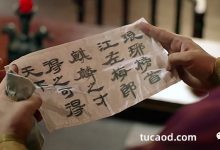 琅琊榜首
江左梅郎
麒麟之才
得之可得
天
tucaod.com